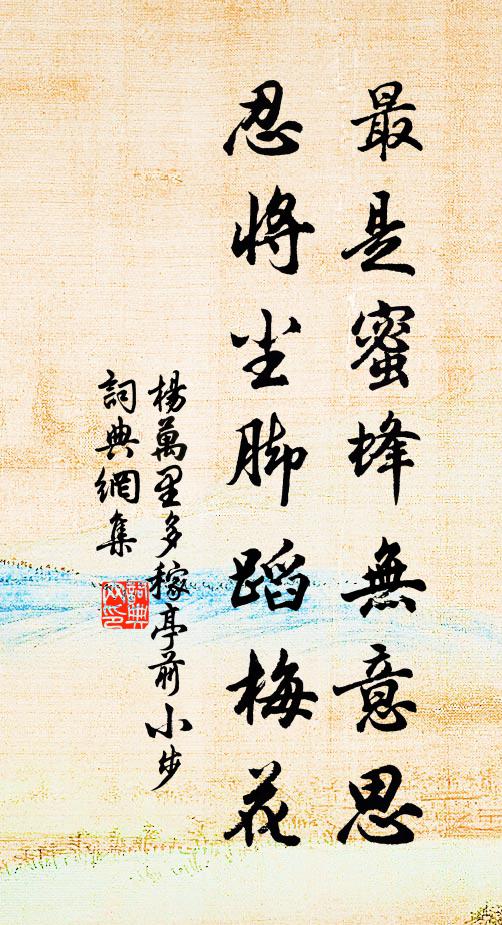 最是蜜蜂無意思
忍將尘脚蹈梅花
楊萬里多稼亭前小步
詞典網集